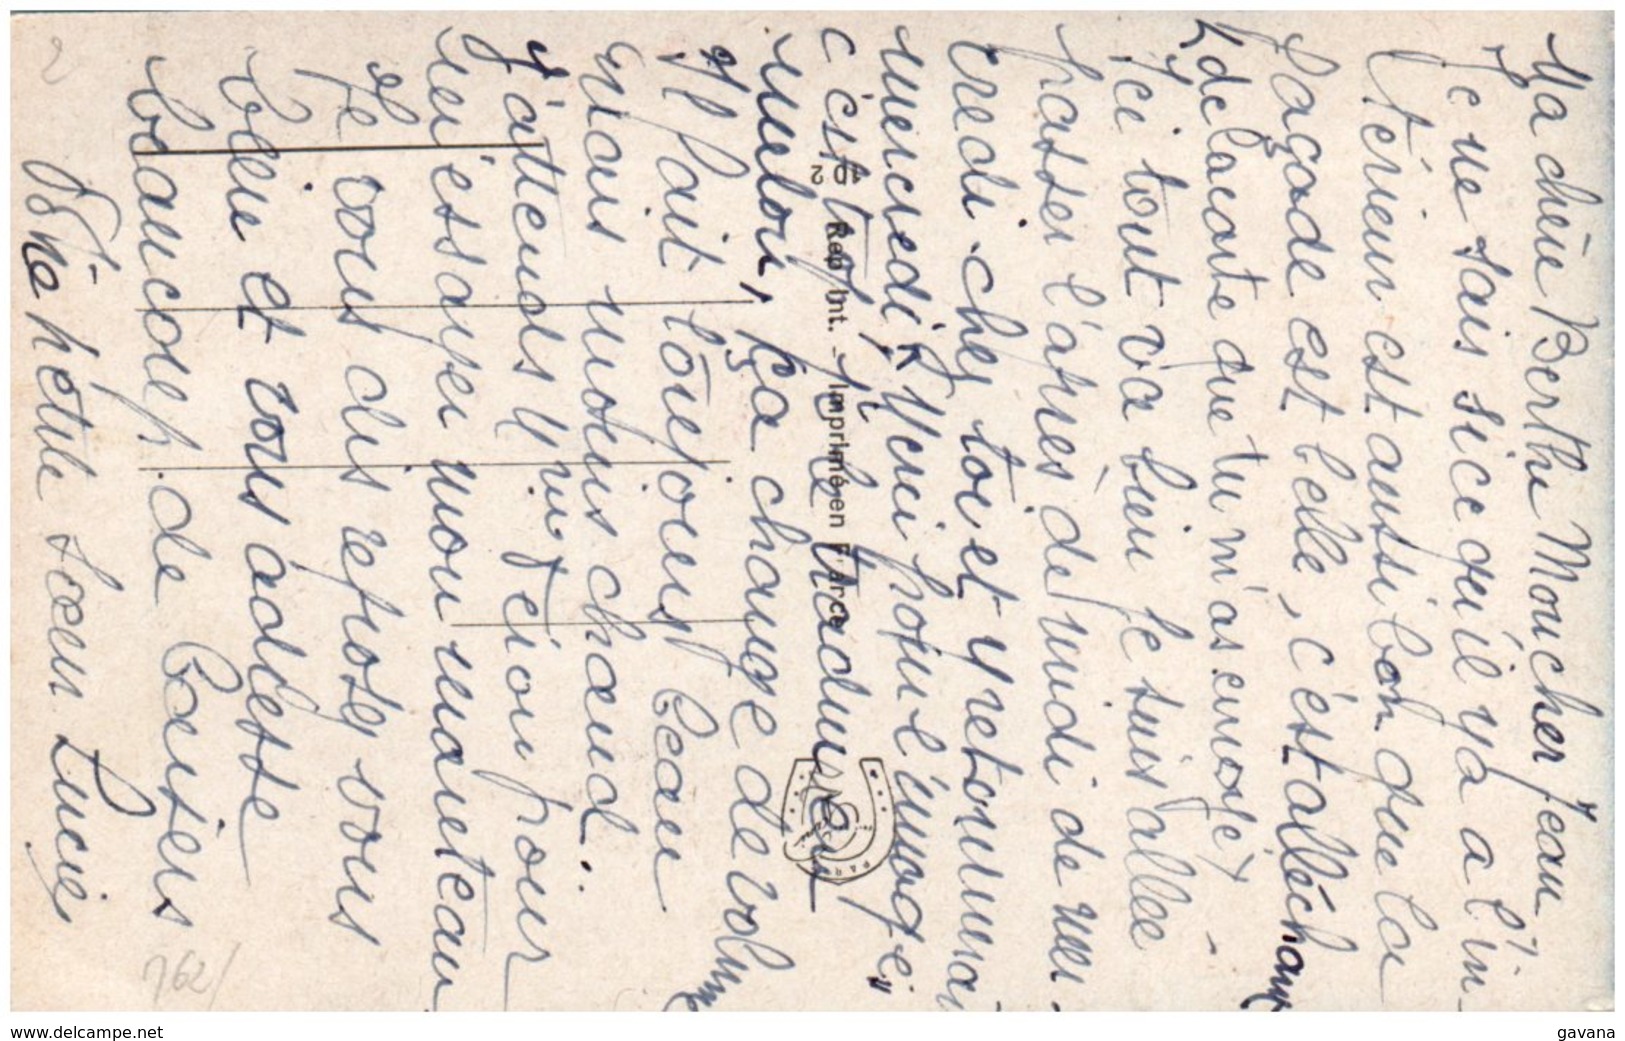 Ma chère Berthe Mon cher Jean
Je ne sais si ce qu'il y a à l'in-
térieur est aussi bon que la
façade est belle, c'est alléchant
(de la carte que tu m'as envoyé)
Ici tout va bien je suis allée
passer l'après-de midi de mer-
credi chez toi et y retournerai
mercredi. "Yeni pour l'image"
c'est toi je le traduis
melon, ça change de volume
Il fait toujours beau
mais moins chaud.
J'attends Yvi Teiou pour
lui essayer mon manteau
Je vous dis reposez vous
bien et vous adresse
beaucoup de baisers
Ta petite soeur Lucie
2
762/
4D 2
Rep int. - Imprimé en France
PARIS
www.delcampe.net
gavana